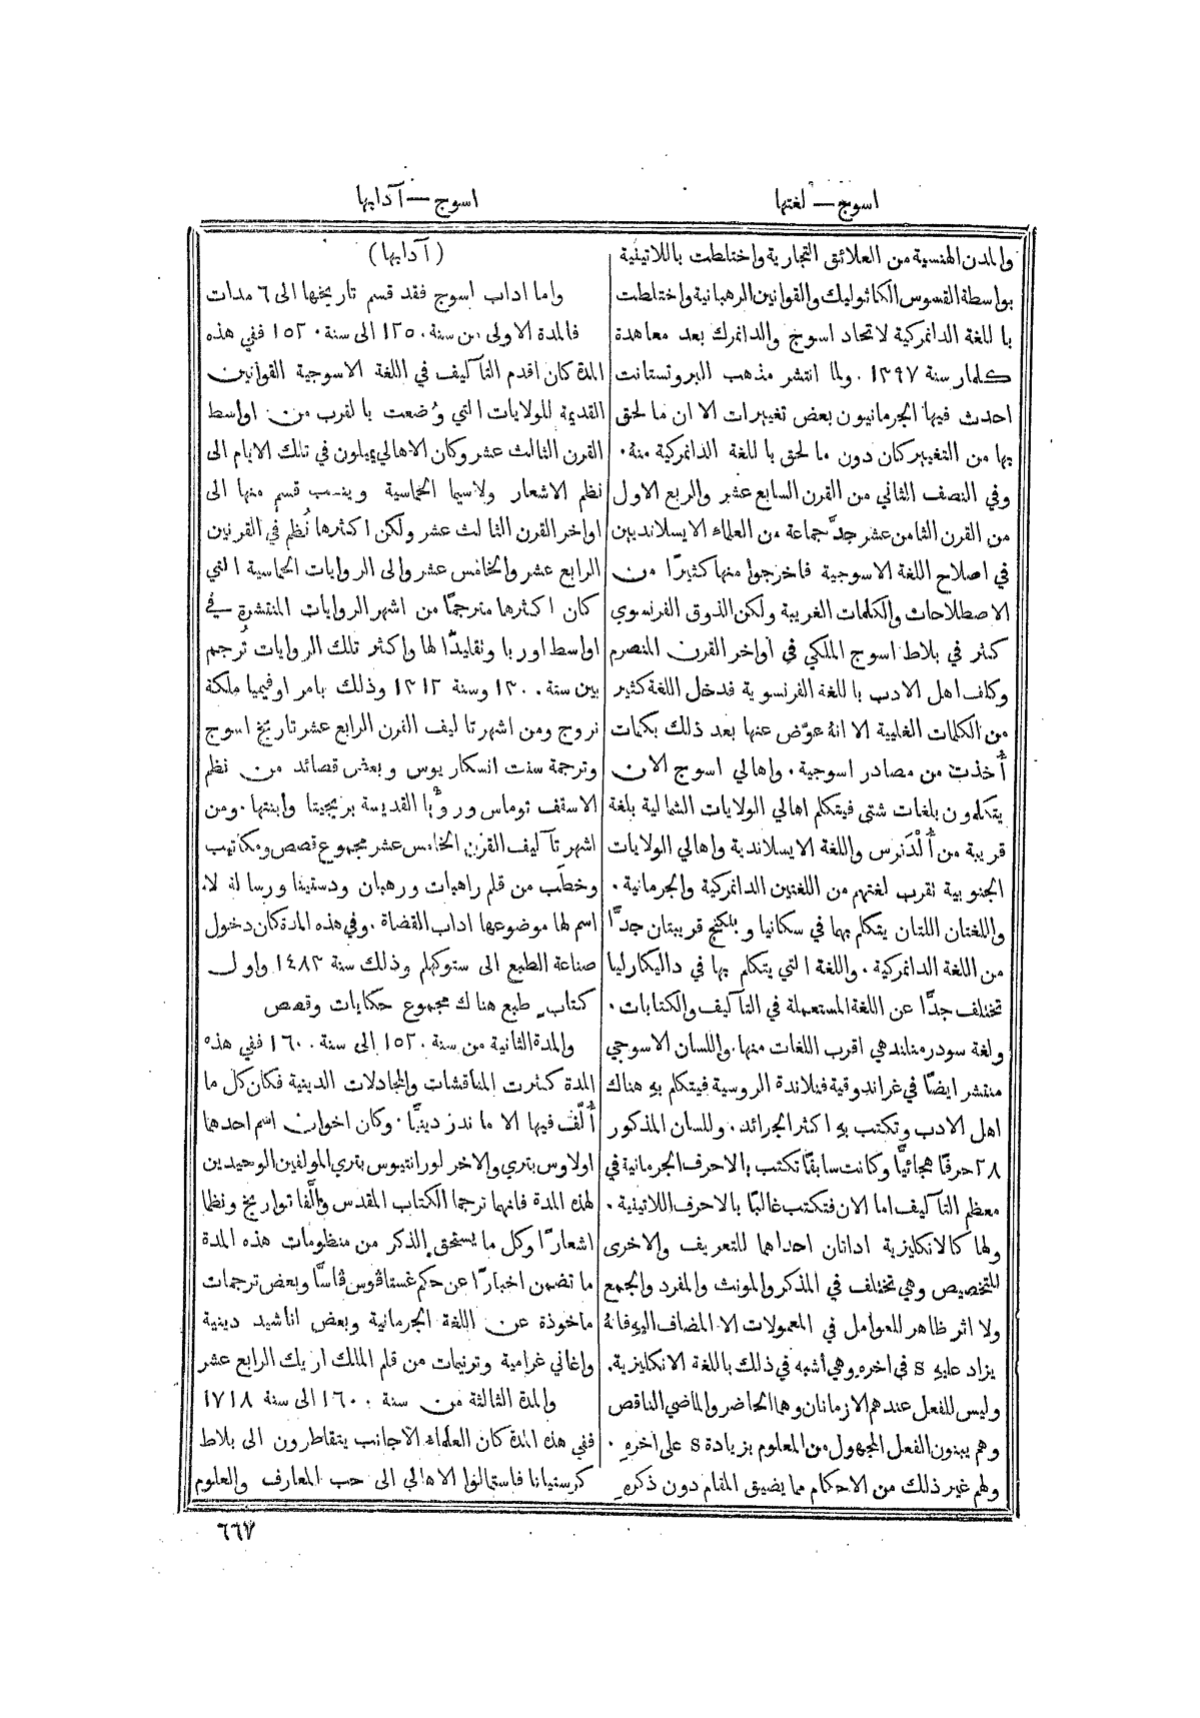 اسوج — لغتها
اسوج — آدابها
والمدن الهنسية من العلائق التجارية واختلطت باللاتينية
بواسطة القسوس الكاثوليك والقوانين الرهبانية واختلطت
باللغة الدانمركية لاتحاد اسوج والدانمرك بعد معاهدة
كلمار سنة ١٣٩٧ . ولما انتشر مذهب البروتستانت
احدث فيها الجرمانيون بعض تغييرات الا ان ما لحق
بها من التغيير كان دون ما لحق باللغة الدانمركية منهُ .
وفي النصف الثاني من القرن السابع عشر والربع الاول
من القرن الثامن عشر جدَّ جماعة من العلماء الايسلانديين
في اصلاح اللغة الاسوجية فاخرجوا منها كثيرًا من
الاصطلاحات والكلمات الغريبة ولكن الذوق الفرنسوي
كثر في بلاط اسوج الملكي في اواخر القرن المنصرم
وكلف اهل الادب باللغة الفرنسوية فدخل اللغة كثير
من الكلمات الغليية الا انهُ عوّض عنها بعد ذلك بكلمات
أُخذت من مصادر اسوجية . واهالي اسوج الان
يتكلمون بلغات شتى فيتكلم اهالي الولايات الشمالية بلغة
قريبة من أُلْدَنرس واللغة الايسلاندية واهالي الولايات
الجنوبية تقرب لغتهم من اللغتين الدانمركية والجرمانية .
واللغتان اللتان يتكلم بهما في سكانيا وبلكنج قريبتان جدًّا
من اللغة الدانمركية . واللغة التي يتكلم بها في داليكارليا
تختلف جدًّا عن اللغة المستعملة في التآليف والكتابات .
ولغة سودرمنلند هي اقرب اللغات منها . واللسان الاسوجي
منتشر ايضًا في غراندوقية فنلاندة الروسية فيتكلم بهِ هناك
اهل الادب وتكتب بهِ اكثر الجرائد . وللسان المذكور
٢٨ حرفًا هجائيًّا وكانت سابقًا تكتب بالاحرف الجرمانية في
معظم التآليف اما الان فتكتب غالبًا بالاحرف اللاتينية .
ولها كالانكليزية اداتان احداهما للتعريف والاخرى
للتخصيص وهي تختلف في المذكر والمونث والمفرد والجمع
ولا اثر ظاهر للعوامل في المعمولات الا المضاف اليهِ فانهُ
يزاد عليهِ s في اخرهِ وهي أشبه في ذلك باللغة الانكليزية .
وليس للفعل عندهم الا زمانان وهما الحاضر والماضي الناقص
وهم يبنون الفعل المجهول من المعلوم بزيادة s على اخرهِ .
ولهم غير ذلك من الاحكام مما يضيق المقام دون ذكرهِ
(آدابها)
واما اداب اسوج فقد قسم تاريخها الى ٦ مدات
فالمدة الاولى من سنة ١٢٥٠ الى سنة ١٥٢٠ ففي هذه
المدة كان اقدم التآليف في اللغة الاسوجية القوانين
القديمة للولايات التي وُضعت بالقرب من اواسط
القرن الثالث عشر وكان الاهالي يميلون في تلك الايام الى
نظم الاشعار ولاسيما الحماسية وينسب قسم منها الى
اواخر القرن الثالث عشر ولكن اكثرها نُظم في القرنين
الرابع عشر والخامس عشر والى الروايات الحماسية التي
كان اكثرها مترجمًا من اشهر الروايات المنتشرة في
اواسط اوربا وتقليدًا لها واكثر تلك الروايات تُرجم
بين سنة ١٣٠٠ وسنة ١٣١٢ وذلك بامر اوفيميا ملكة
نروج ومن اشهر تاليف القرن الرابع عشر تاريخ اسوج
وترجمة سنت انسكاريوس وبعض قصائد من نظم
الاسقف توماس ورؤيا القديسة بريجيتا وابنتها . ومن
اشهر تآليف القرن الخامس عشر مجموع قصص ومكاتيب
وخطب من قلم راهبات ورهبان ودستينا ورسالة لا
اسم لها موضوعها اداب القضاة . وفي هذه المدة كان دخول
صناعة الطبع الى ستوكهلم وذلك سنة ١٤٨٣ واول
كتاب طبع هناك مجموع حكايات وقصص
والمدة الثانية من سنة ١٥٢٠ الى سنة ١٦٠٠ ففي هذه
المدة كثرت المناقشات والمجادلات الدينية فكان كل ما
أُلّف فيها الا ما ندر دينيًّا . وكان اخوان اسم احدهما
اولاوس بتري والاخر لورانتيوس بتري المولفين الوحيدين
لهذه المدة فانهما ترجما الكتاب المقدس والَّفا تواريخ ونظما
اشعارًا وكل ما يستحق الذكر من منظومات هذه المدة
ما تضمن اخبارًا عن حكم غستاڤوس ڤاسَّا وبعض ترجمات
ماخوذة عن اللغة الجرمانية وبعض اناشيد دينية
واغاني غرامية وترنيمات من قلم الملك اريك الرابع عشر
والمدة الثالثة من سنة ١٦٠٠ الى سنة ١٧١٨
ففي هذه المدة كان العلماء الاجانب يتقاطرون الى بلاط
كرستيانا فاستمالوا الاهالي الى حب المعارف والعلوم
٦٦٧